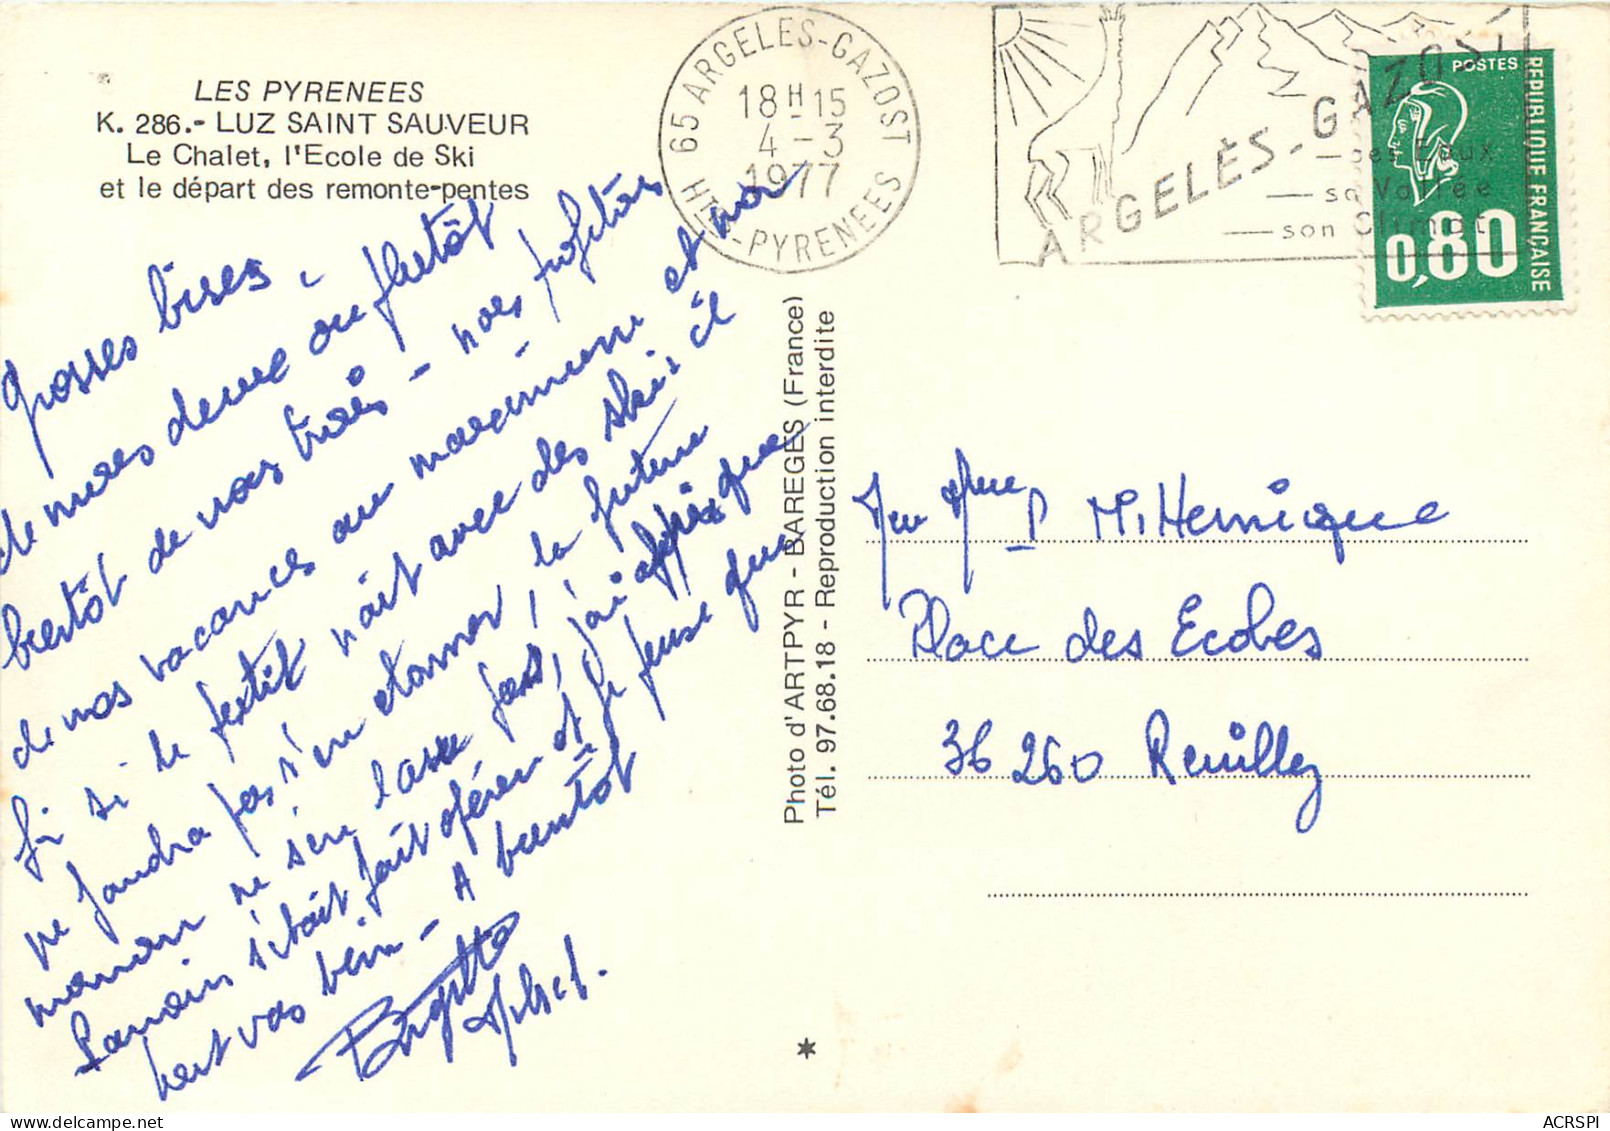 LES PYRENEES
K. 286.- LUZ SAINT SAUVEUR
Le Chalet, l'Ecole de Ski
et le départ des remonte-pentes
65 ARGELES-GAZOST
18H-15
4-3
1977
HTES-PYRENEES
ARGELÈS-GAZOST
ses Eaux
sa Vallée
son Climat
POSTES
REPUBLIQUE FRANÇAISE
0,80
Grosses bises,
de nous deux ou plutôt
bientôt de nous trois - nous profitons
de nos vacances au maximum et
si le petit nait avec des skis il
ne faudra pas s'en etonner, la future
maman ne sera pas, j'ai appris que
Romain s'était fait opérer et je pense que
tout vas bien - A bientôt
Brigitte
Photo d'ARTPYR - BAREGES (France)
Tél. 97.68.18 - Reproduction interdite
Place des Ecoles
36260 Reuilly
ACRSPI